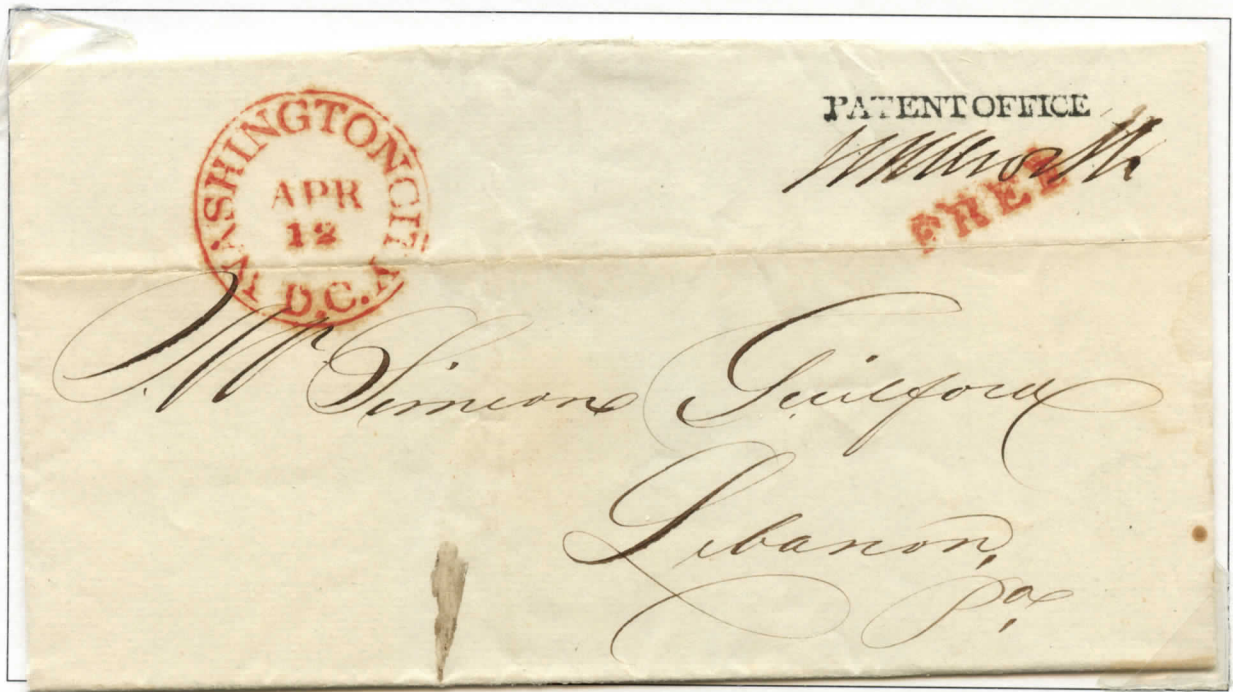 WASHINGTON CITY
APR
12
D.C.
PATENT OFFICE
FREE
Mr Simeon Guilford
Lebanon,
Pa,